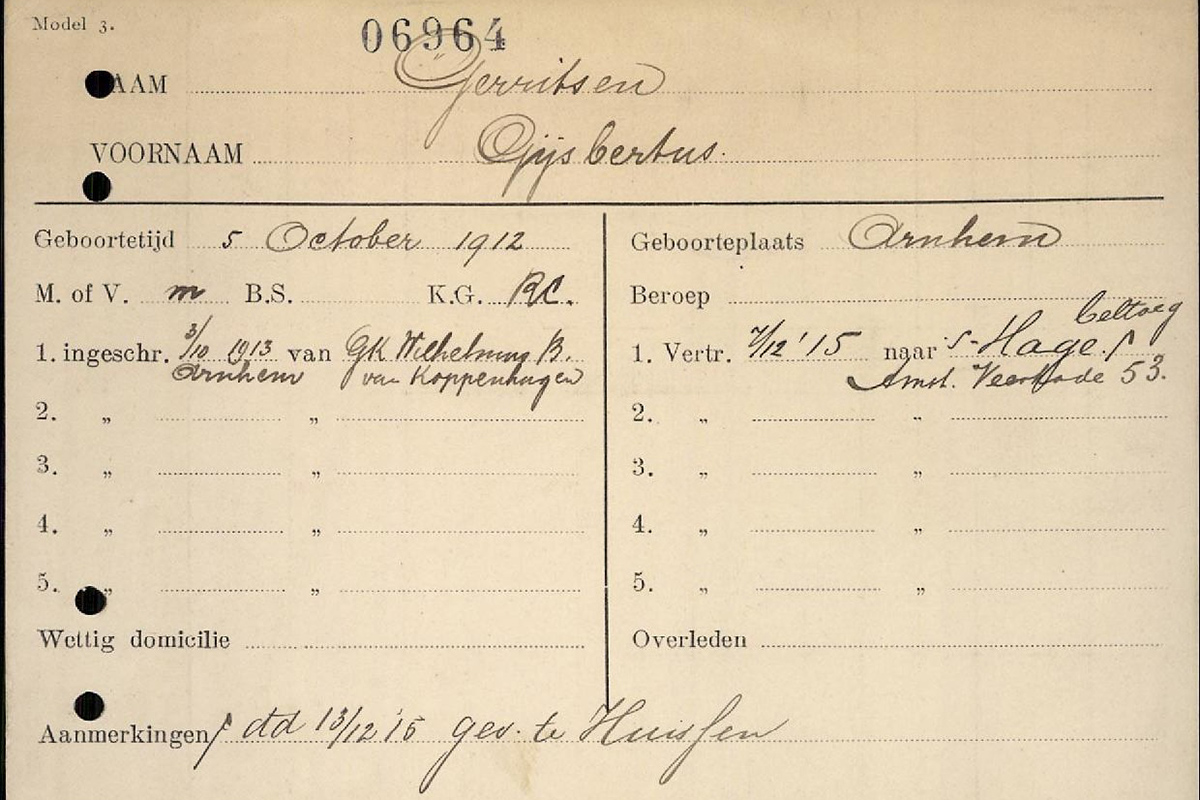 Model 3.
06964
NAAM Gerritsen
VOORNAAM Gijsbertus.
Geboortetijd 5 October 1912
Geboorteplaats Arnhem
M. of V. m B.S. K.G. RC.
Beroep
1. ingeschr. 3/10 1913 van GK Wilhelmus B.
Arnhem van Koppenhagen
1. Vertr. 7/12 '15 naar 's-Hage
Amst. Veerkade 53.
2. „ „
2. „ „
3. „ „
3. „ „
4. „ „
4. „ „
5. „ „
5. „ „
Wettig domicilie
Overleden
Aanmerkingen dd 13/12 '15 gev. te Huissen